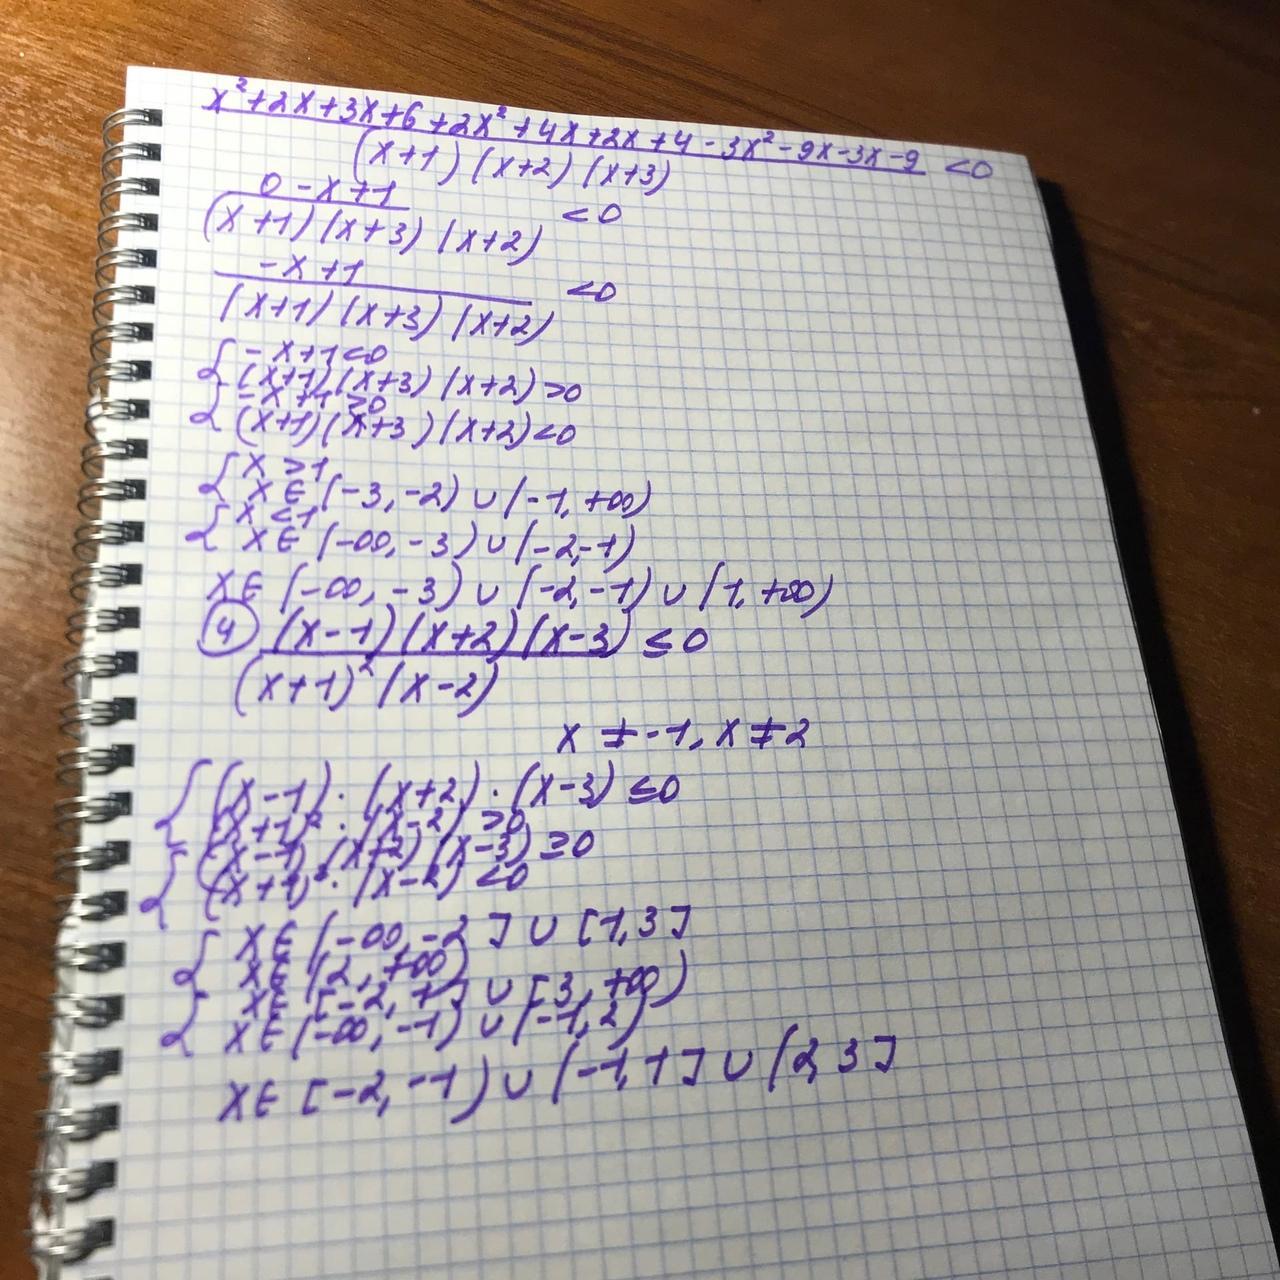 x²+2x+3x+6+2x²+4x+2x+4-3x²-9x-3x-9 <0
(x+1)(x+2)(x+3)
0-x+1 <0
(x+1)(x+3)(x+2)
-x+1 <0
(x+1)(x+3)(x+2)
{ -x+1<0
(x+1)(x+3)(x+2)>0
{ -x+1>0
(x+1)(x+3)(x+2)<0
{ x>1
x∈(-3,-2)∪(-1,+∞)
{ x<1
x∈(-∞,-3)∪(-2,-1)
x∈(-∞,-3)∪(-2,-1)∪(1,+∞)
④ (x-1)(x+2)(x-3) ≤0
(x+1)²(x-2)
x≠-1, x≠2
{ (x-1)·(x+2)·(x-3)≤0
(x+1)²·(x-2)>0
{ (x-1)(x+2)(x-3)≥0
(x+1)²·(x-2)<0
{ x∈(-∞,-2]∪[1,3]
x∈(2,+∞)
{ x∈[-2,1]∪[3,+∞)
x∈(-∞,-1)∪(-1,2)
x∈[-2,-1)∪(-1,1]∪(2,3]